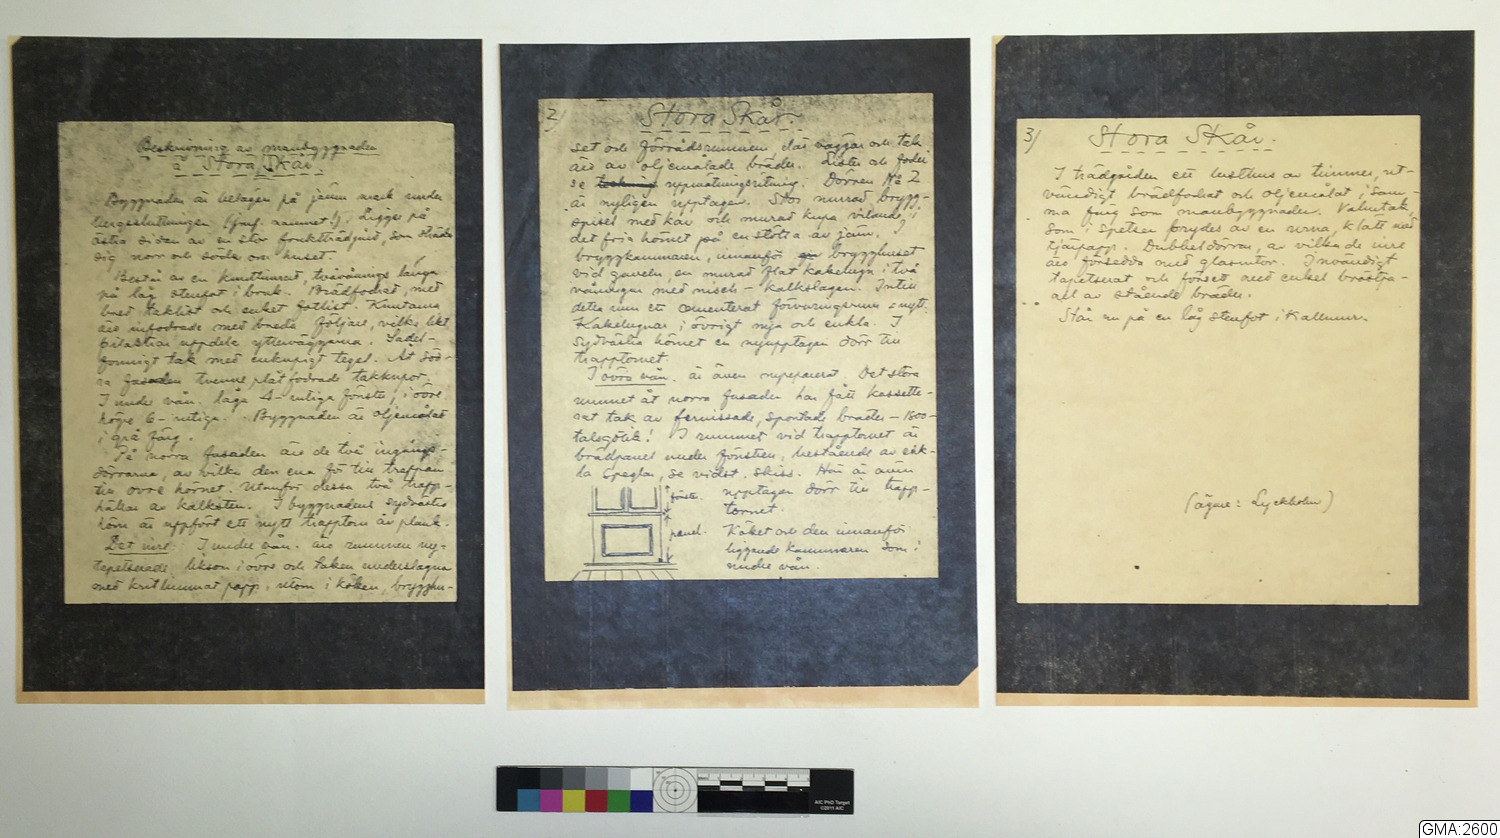 Beskrivning av manbyggnaden
å Stora Skår.
Byggnaden är belägen på jämn mark under
bergssluttningen (jmf. namnet!). Ligger på
östra sidan av en stor fruktträdgård, som sträcker
sig norr och söder om huset.
Består av en knuttimrad, tvåvånings länga
på låg stenfot i bruk. Brädfodrad, med
bred taklist och enkel fotlist. Knutarna
äro infodrade med breda följare, vilka likt
pilastrar uppdela ytterväggarna. Sadel-
formigt tak med enkupigt tegel. Åt söd-
ra fasaden tvenne plåtfodrade takkupor.
I undre vån. låga 4-rutiga fönster, i övre
höga 6-rutiga. Byggnaden är oljemålad
i grå färg.
På norra fasaden äro de två ingångs-
dörrarna, av vilka den ena för till trappan
till övre hörnet. Utanför dessa två trapp-
hällar av kalksten. I byggnadens sydvästra
hörn är uppfört ett nytt trapptorn av plank.
Det inre. I undre vån. äro rummen ny-
tapetserade, liksom i övre och taken underslagna
med kritlimmat papp, utom i köken, brygghu-
2/ Stora Skår.
set och förrådsrummen där väggar och tak
äro av oljemålade bräder. Lister och foder
se uppmätningsritning. Dörren No 2
är nyligen upptagen. Stor murad brygg-
spisel med kar och murad kupa vilande i
det fria hörnet på en stötta av järn. I
bryggkammaren, innanför brygghuset
vid gaveln, en murad flat kakelugn i två
våningar med nisch - kalkslagen. Intill
detta rum ett cementerat förvaringsrum = nytt.
Kakelugnar i övrigt nya och enkla. I
sydvästra hörnet en nyupptagen dörr till
trapptornet.
I övre vån. är även omreparerat. Det stora
rummet åt norra fasaden har fått kassette-
rat tak av fernissade, spontade bräder - 1800-
talsgotik! I rummet vid trapptornet är
brädpanel under fönstren, bestående av enk-
la speglar, se vidst. skiss. Här är även
upptagen dörr till trapp-
tornet.
Köket och den innanför
liggande kammaren som i
undre vån.
fönster.
panel.
3/ Stora Skår.
I trädgården ett lusthus av timmer, ut-
vändigt brädfodrat och oljemålat i sam-
ma färg som manbyggnaden. Valmtak,
som i spetsen prydes av en urna, klätt med
tjärpapp. Dubbeldörrar, av vilka de inre
äro försedda med glasrutor. Invändigt
tapetserat och försett med enkel bröstpa-
nel av stående bräder.
Står nu på en låg stenfot i kallmur.
(ägare: Lyckholm)
AIC PhD Target
©2011 AIC
GMA:2600